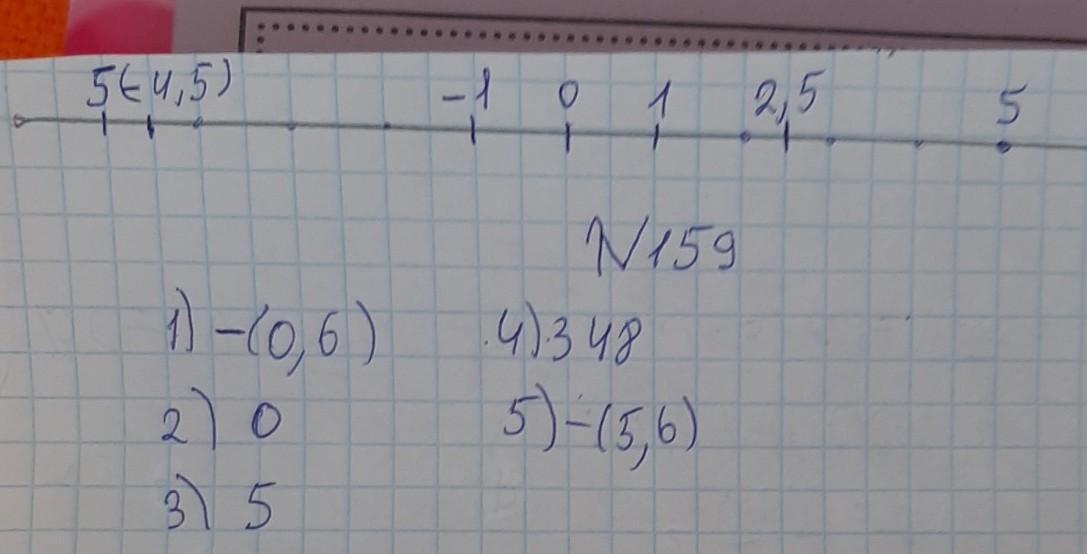 5(-4,5) -1 0 1 2,5 5
N159
1) -(0,6) 4) 348
2) 0 5) -(5,6)
3) 5